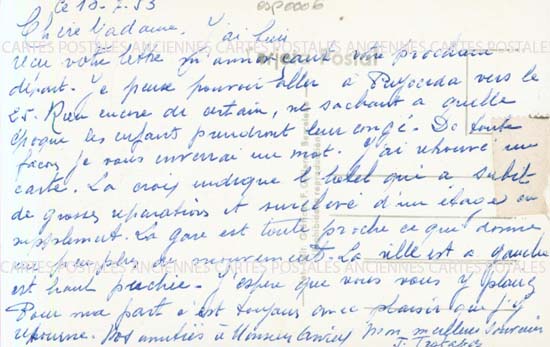 ce 13-7-53
esp0006
Chère Madame. J'ai bien
reçu votre lettre m'annonçant votre prochain
départ. Je pense pouvoir aller à vers le
25. Rien encore de certain, ne sachant à quelle
époque les enfants prendront leur congé. De toute
façon je vous enverrai un mot. J'ai retrouvé une
carte. La croix indique l'hôtel qui a subit
de grosses réparations et surélevé d'un étage en
supplément. La gare est toute proche ce qui donne
un peu plus de mouvement. La ville est à gauche
est haut perchée. J'espère que vous vous y plairez
Pour ma part c'est toujours avec plaisir que j'y
retourne. amitiés à Monsieur mon meilleur souvenir
J.
CARTES POSTALES ANCIENNES CARTES POSTALES ANCIENNES CARTES POSTALES